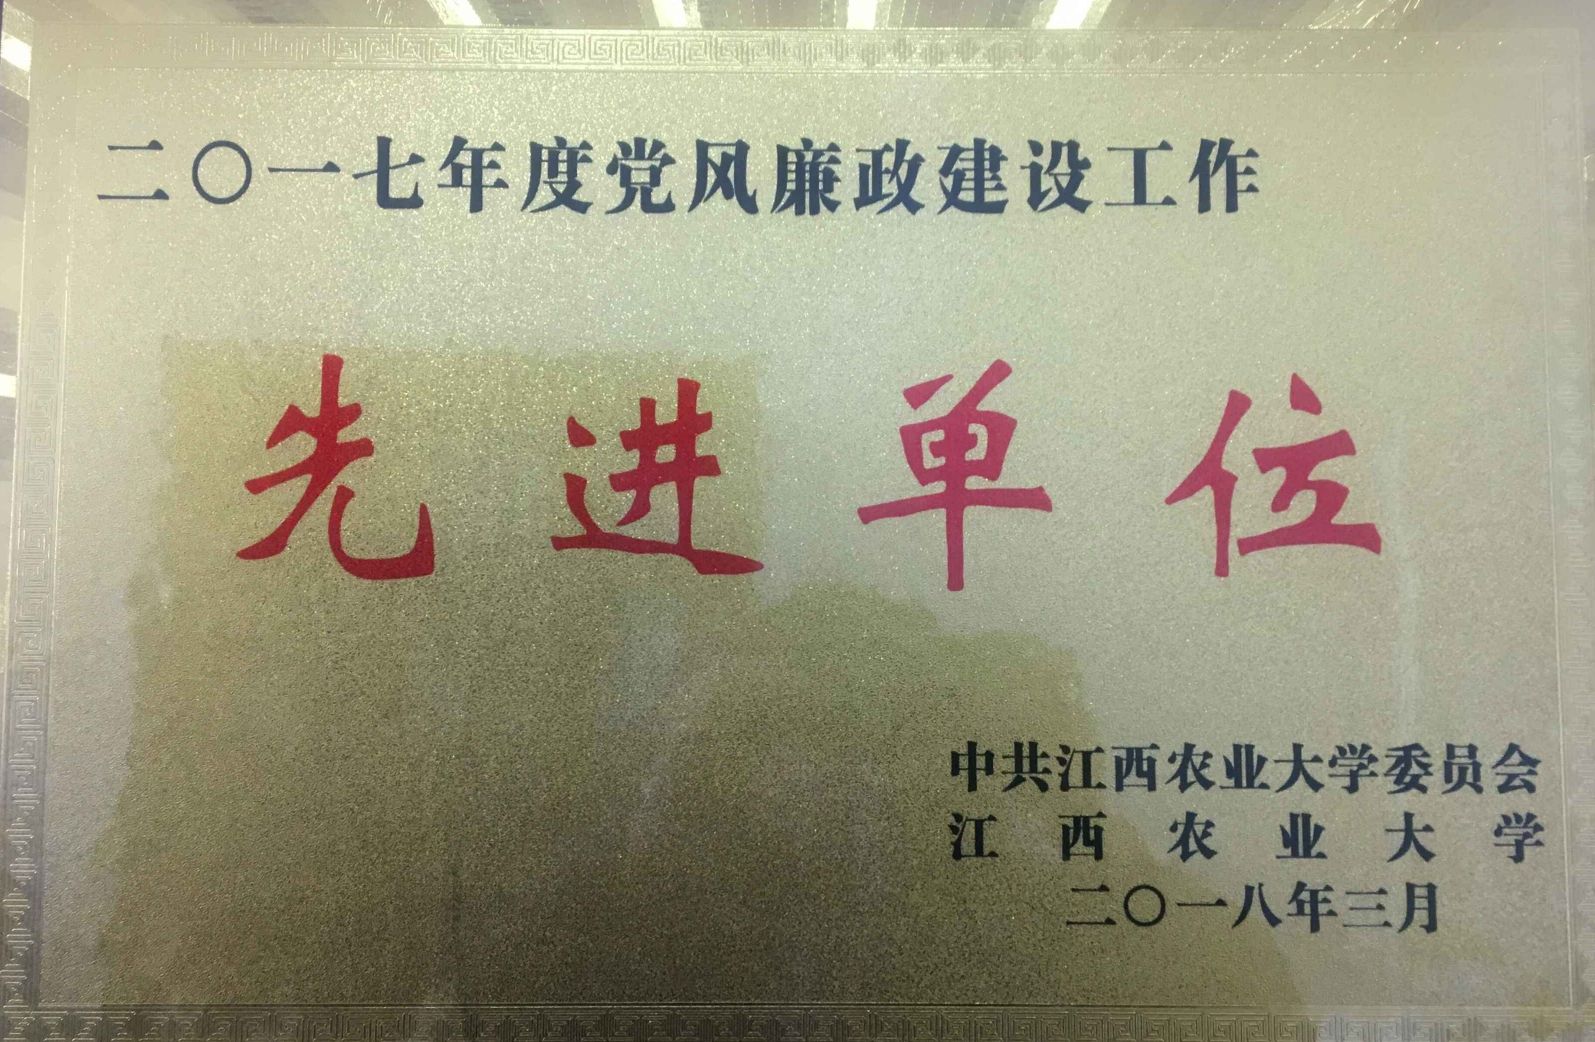 二〇一七年度党风廉政建设工作
先进单位
中共江西农业大学委员会
江西农业大学
二〇一八年三月